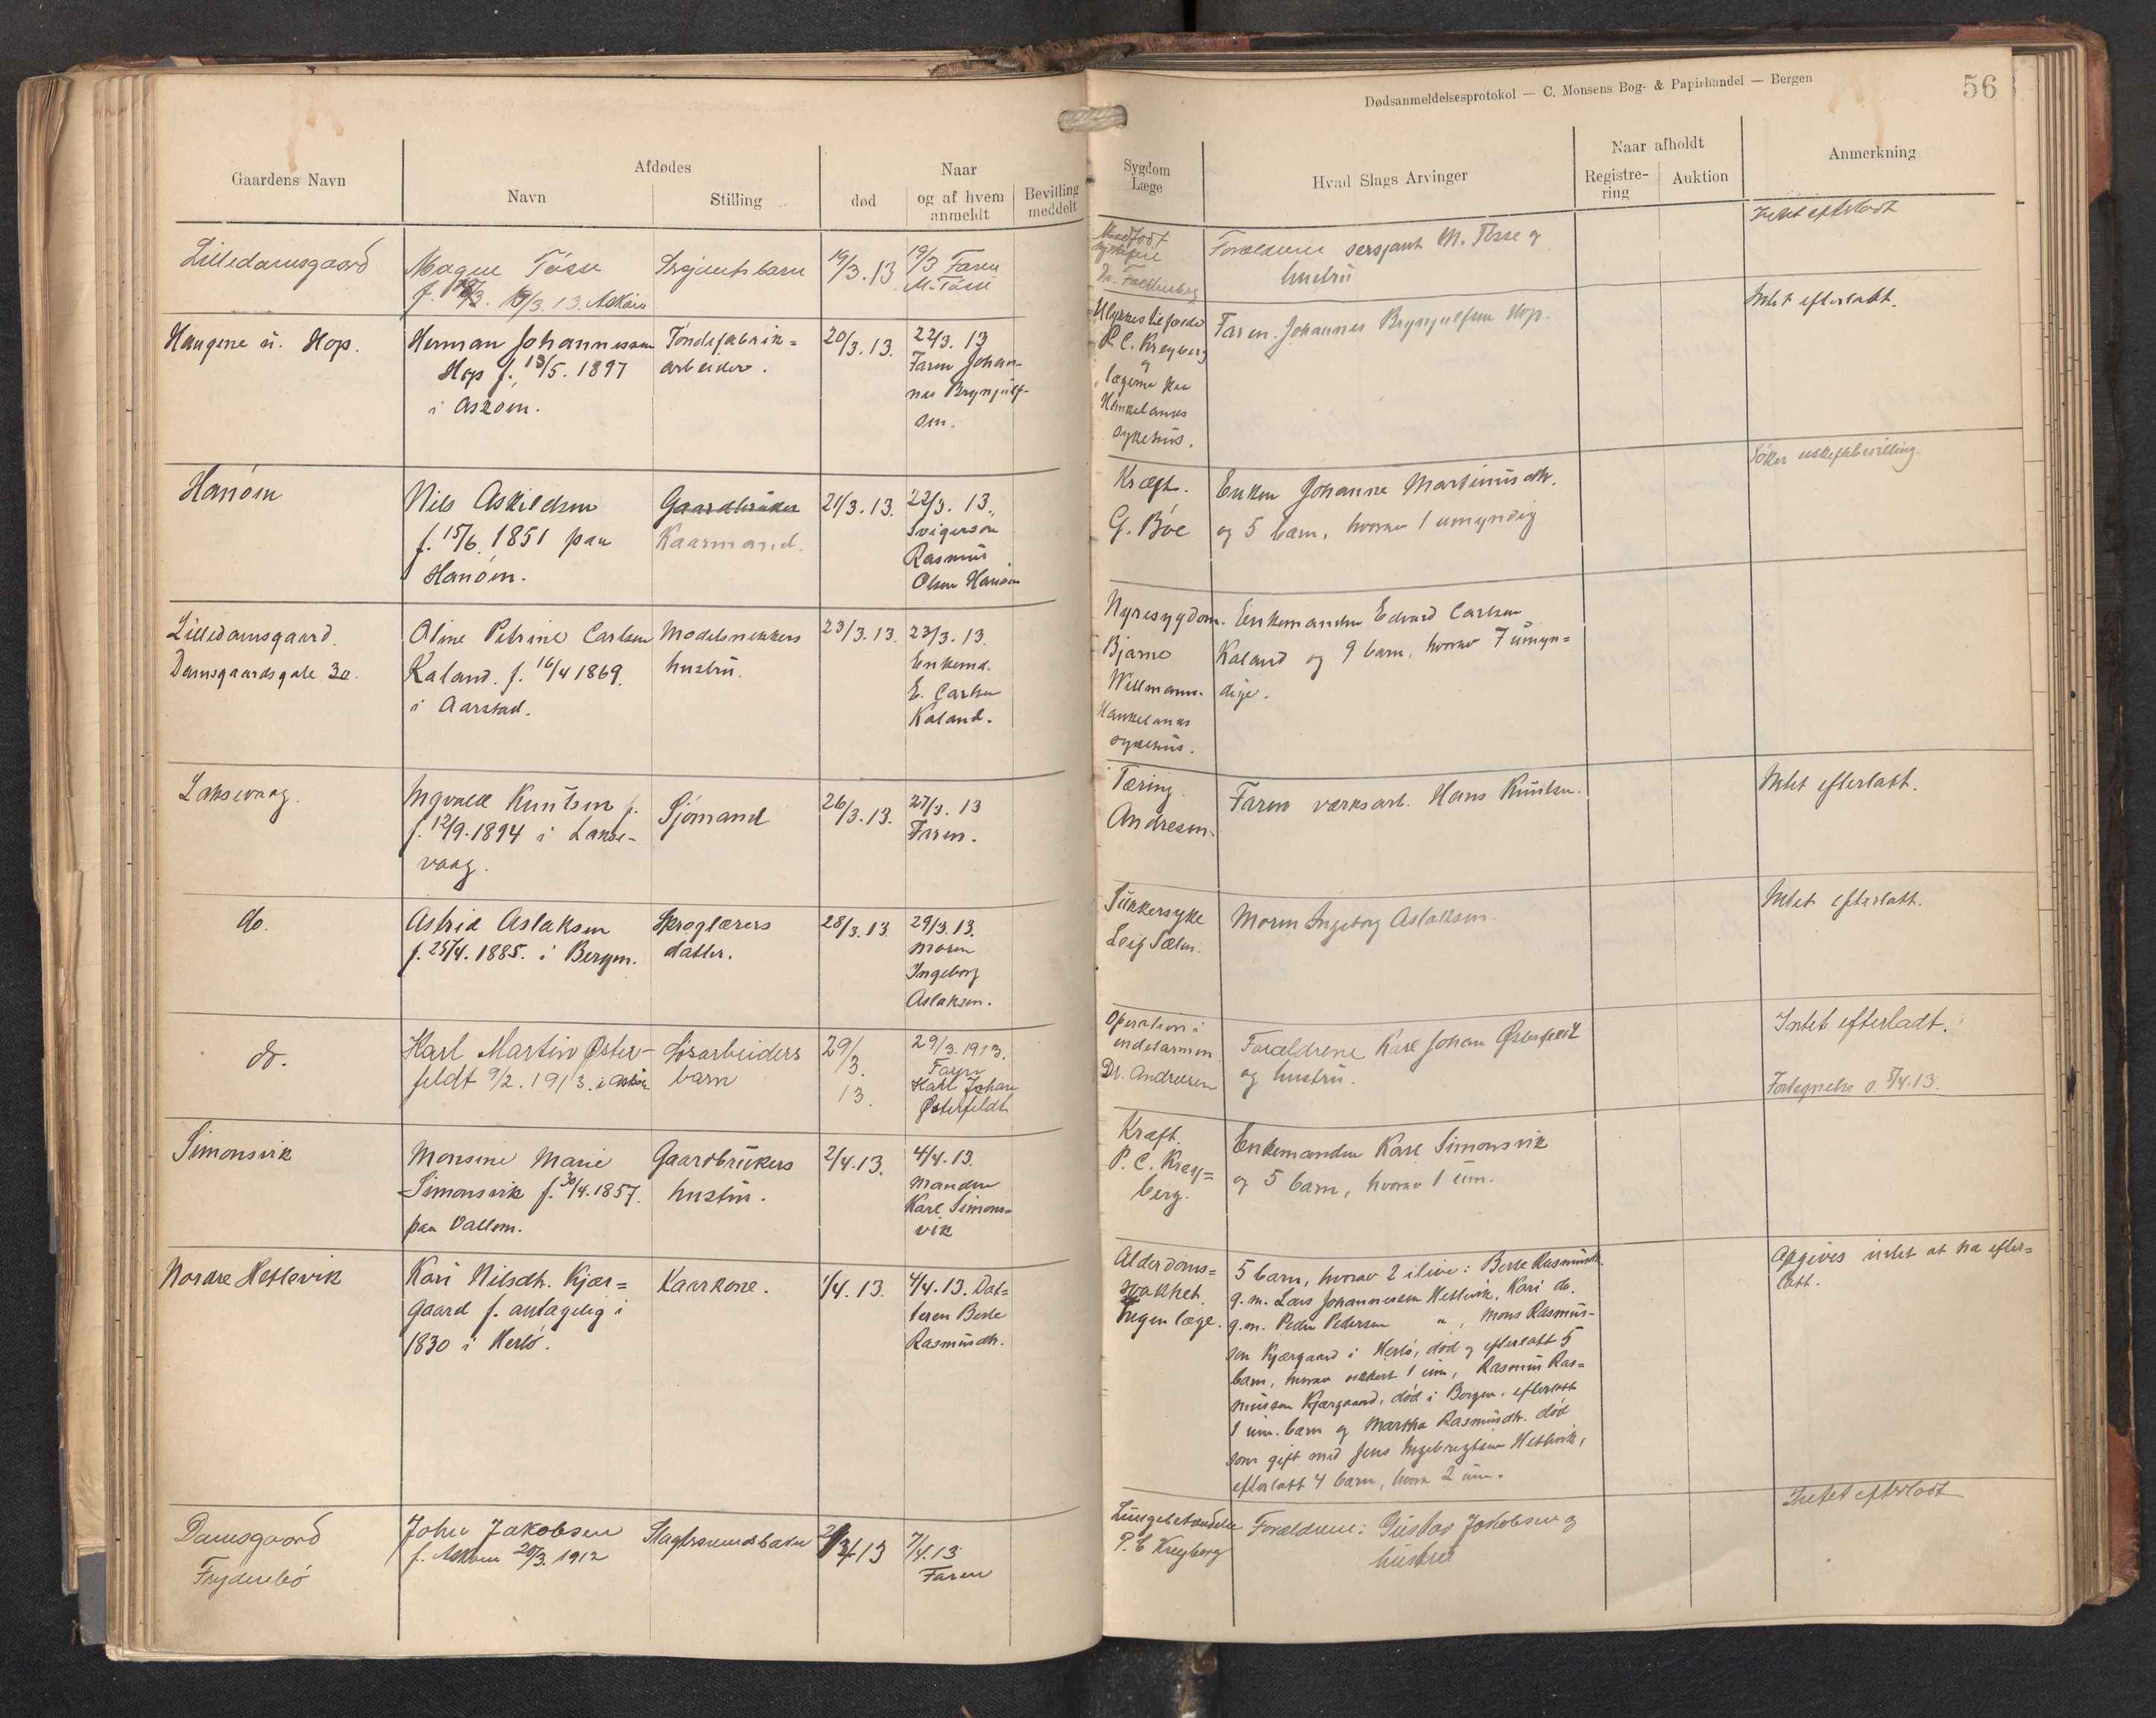 Dødsanmeldelsesprotokol — C. Monsens Bog- & Papirhandel — Bergen
56
Gaardens Navn
Afdødes
Navn
Stilling
Naar
død
og af hvem
anmeldt
Bevilling
meddelt
Sygdom
Læge
Hvad Slags Arvinger
Naar afholdt
Registre-
ring
Auktion
Anmerkning
Lilledamsgaard
Magne Tösse
f. 19/3. 13. Askøin
Sersjants barn
19/3.13
19/3 Faren
M. Tösse
Dr. Falkenberg
Forældrene sersjant M. Tösse og
hustru
Intet efterladt
Haugene u. Hop.
Herman Johannessen
Hop f. 13/5. 1897
i Askøen.
Töndefabrik=
arbeider.
20/3.13.
22/3. 13
Faren Johan-
nes Brynjulf-
sen.
Ulykkestilfælde
P. C. Kreyberg
og
lægerne paa
Haukelands
sykehus.
Faren Johannes Brynjulfsen Hop.
Intet efterlatt.
Hanöen
Nils Askildsen
f. 15/6. 1851 paa
Hanöen.
Gaardbruker
Kaarmand.
21/3.13.
22/3. 13.
Svigersøn
Rasmus
Olsen Hanöen
Kræft.
G. Bøe
Enken Johanne Martinusdtr.
og 5 barn, hvorav 1 umyndig
Søker uskiftebevilling.
Lilledamsgaard.
Damsgaardsgate 30.
Oline Petrine Carlsen
Kaland. f. 16/4 1869.
i Aarstad.
Modelsnekkers
hustru.
23/3.13.
23/3.13.
Enkemd.
E. Carlsen
Kaland.
Nyresygdom.
Bjarne
Willmann.
Haukelands
sykehus.
Enkemanden Edvard Carlsen
Kaland og 9 barn, hvorav 7 umyn=
dige.
Laksevaag.
Ingvald Knutsen f.
f. 12/9.1894 i Lakse-
vaag.
Sjømand
26/3.13.
27/3. 13
Faren.
Tæring.
Andresen.
Faren værksarb. Hans Knutsen.
Intet efterlatt.
do.
Astrid Aslaksen
f. 25/4. 1885. i Bergen.
Sproglærers
datter.
28/3.13
29/3.13.
Moren
Ingeborg
Aslaksen.
Sukkersyke
Leif Sælen.
Moren Ingeborg Aslaksen.
Intet efterlatt.
do.
Karl Martin Øster-
feldt 9/2. 1913. i Askøen
Løsarbeiders
barn
29/
3.
13.
29/3.1913.
Faren
Karl Johan
Østerfeldt
Operation i
endetarmen
Dr. Andresen
Forældrene Karl Johan Østerfeldt
og hustru.
Intet efterladt.
Fortegnelse o. 5/4.13.
Simonsvik
Monsine Marie
Simonsvik f. 30/4.1857.
paa Vallem.
Gaardbrukers
hustru.
2/4.13.
4/4.13.
Manden
Karl Simons=
vik
Kræft.
P. C. Krey=
berg.
Enkemanden Karl Simonsvik
og 5 barn, hvorav 1 um.
Nordre Hetlevik
Kari Nilsdtr. Kjær=
gaard f. antagelig i
1830 i Herlö.
Kaarkone.
1/4.13.
4/4.13. Dat=
teren Berte
Rasmusdtr.
Alderdoms=
svakhet.
Ingen læge.
5 barn, hvorav 2 ilive: Berte Rasmusdtr.
g.m. Lars Johannessen Hetlevik, Kari do.
g.m. Peder Pedersen " , Mons Rasmus-
sen Kjærgaard i Herlö, död og efterlatt 5
barn, hvorav sikkert 1 um, Rasmus Ras=
mussen Kjærgaard, död i Bergen, efterlatt
1 um. barn og Martha Rasmusdtr. död
som gift med Jens Ingebregtsen Hetlevik,
efterlatt 4 barn, hvorav 2 um.
Opgives intet at ha efter=
latt.
Damsgaard
Frydenbö
John Jakobsen
f. Askøen 20/3. 1912
Slagtersvends barn
7/4.13
Faren
Lungebetændelse
P. C. Kreyberg
Forældrene: Gustav Jakobsen og
hustru
Intet efterladt